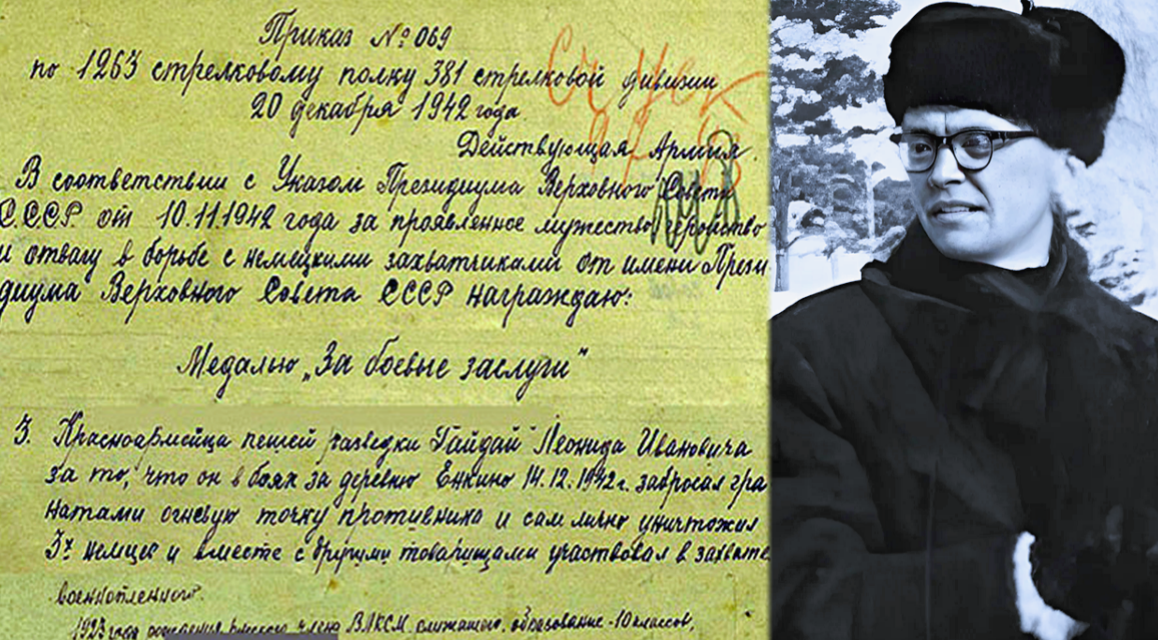 Приказ № 069
по 1263 стрелковому полку 381 стрелковой дивизии
20 декабря 1942 года
Действующая Армия.
В соответствии с Указом Президиума Верховного Совета
СССР от 10.11.1942 года за проявленное мужество геройство
и отвагу в борьбе с немецкими захватчиками от имени Прези
диума Верховного Совета СССР награждаю:
Медалью „За боевые заслуги"
3. Красноармейца пешей разведки Гайдай Леонида Ивановича
за то, что он в боях за деревню Енкино 14.12.1942 г. забросал гра
натами огневую точку противника и сам лично уничтожил
3х немцев и вместе с другими товарищами участвовал в захвате
военнопленного.
1923 года рождения, русского, члена ВЛКСМ, служащего, образование - 10 классов,